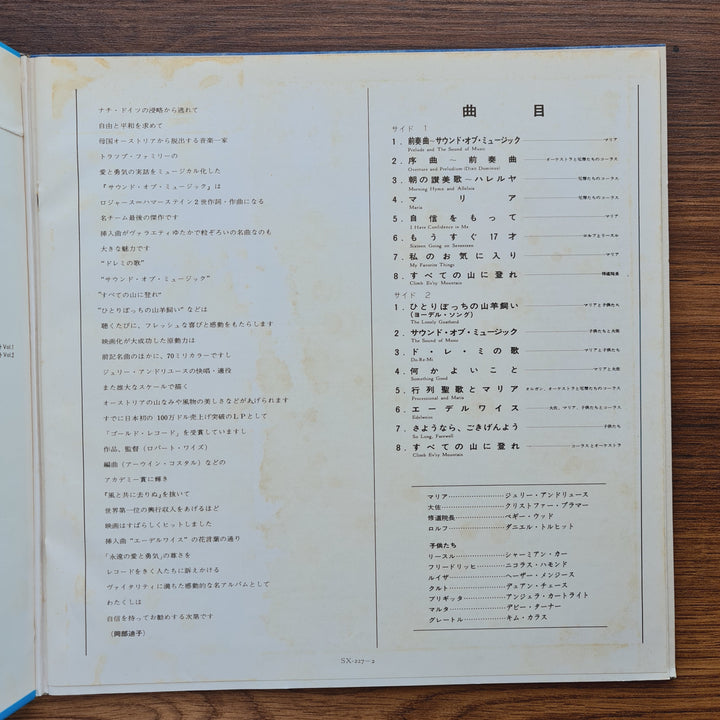 ト Vol.1
ト Vol.2
ナチ・ドイツの侵略から逃れて
自由と平和を求めて
母国オーストリアから脱出する音楽一家
トラップ・ファミリーの
愛と勇気の実話をミュージカル化した
「サウンド・オブ・ミュージック」は
ロジャース＝ハマースティン2世作詞・作曲になる
名チーム最後の傑作です
挿入曲がヴァラエティゆたかで粒ぞろいの名曲なのも
大きな魅力です
“ドレミの歌”
“サウンド・オブ・ミュージック”
“すべての山に登れ”
“ひとりぼっちの山羊飼い”などは
聴くたびに、フレッシュな喜びと感動をもたらします
映画化が大成功した原動力は
前記名曲のほかに、70ミリカラーですし
ジュリー・アンドリュースの快唱・適役
また雄大なスケールで描く
オーストリアの山なみや風物の美しさなどがあげられます
すでに日本初の100万ドル売上げ突破のLPとして
「ゴールド・レコード」を受賞していますし
作品、監督（ロバート・ワイズ）
編曲（アーウイン・コスタル）などの
アカデミー賞に輝き
「風と共に去りぬ」を抜いて
世界第一位の興行収入をあげるほど
映画はすばらしくヒットしました
挿入曲“エーデルワイス”の花言葉の通り
「永遠の愛と勇気」の尊さを
レコードをきく人たちに訴えかける
ヴァイタリティに満ちた感動的な名アルバムとして
わたくしは
自信を持ってお勧めする次第です
（岡部迪子）
曲 目
サイド 1
1. 前奏曲～サウンド・オブ・ミュージック マリア
Prelude and The Sound of Music
2. 序曲～前奏曲 オーケストラと尼僧たちのコーラス
Overture and Preludium (Dixit Dominus)
3. 朝の讃美歌～ハレルヤ 尼僧たちのコーラス
Morning Hymn and Alleluia
4. マリア 尼僧たちのコーラス
Maria
5. 自信をもって マリア
I Have Confidence in Me
6. もうすぐ17才 ロルフとリースル
Sixteen Going on Seventeen
7. 私のお気に入り マリア
My Favorite Things
8. すべての山に登れ 修道院長
Climb Ev'ry Mountain
サイド 2
1. ひとりぼっちの山羊飼い マリアと子供たち
（ヨーデル・ソング）
The Lonely Goatherd
2. サウンド・オブ・ミュージック 子供たちと大佐
The Sound of Music
3. ド・レ・ミの歌 マリアと子供たち
Do-Re-Mi
4. 何かよいこと マリアと大佐
Something Good
5. 行列聖歌とマリア オルガン、オーケストラと尼僧たちのコーラス
Processional and Maria
6. エーデルワイス 大佐、マリア、子供たちとコーラス
Edelweiss
7. さようなら、ごきげんよう 子供たち
So Long, Farewell
8. すべての山に登れ コーラスとオーケストラ
Climb Ev'ry Mountain
マリア…………ジュリー・アンドリュース
大佐…………クリストファー・プラマー
修道院長…………ペギー・ウッド
ロルフ…………ダニエル・トルヒット
子供たち
リースル…………シャーミアン・カー
フリードリッヒ…………ニコラス・ハモンド
ルイザ…………ヘーザー・メンジース
クルト…………デュアン・チェース
ブリギッタ…………アンジェラ・カートライト
マルタ…………デビー・ターナー
グレートル…………キム・カラス
SX-227—2